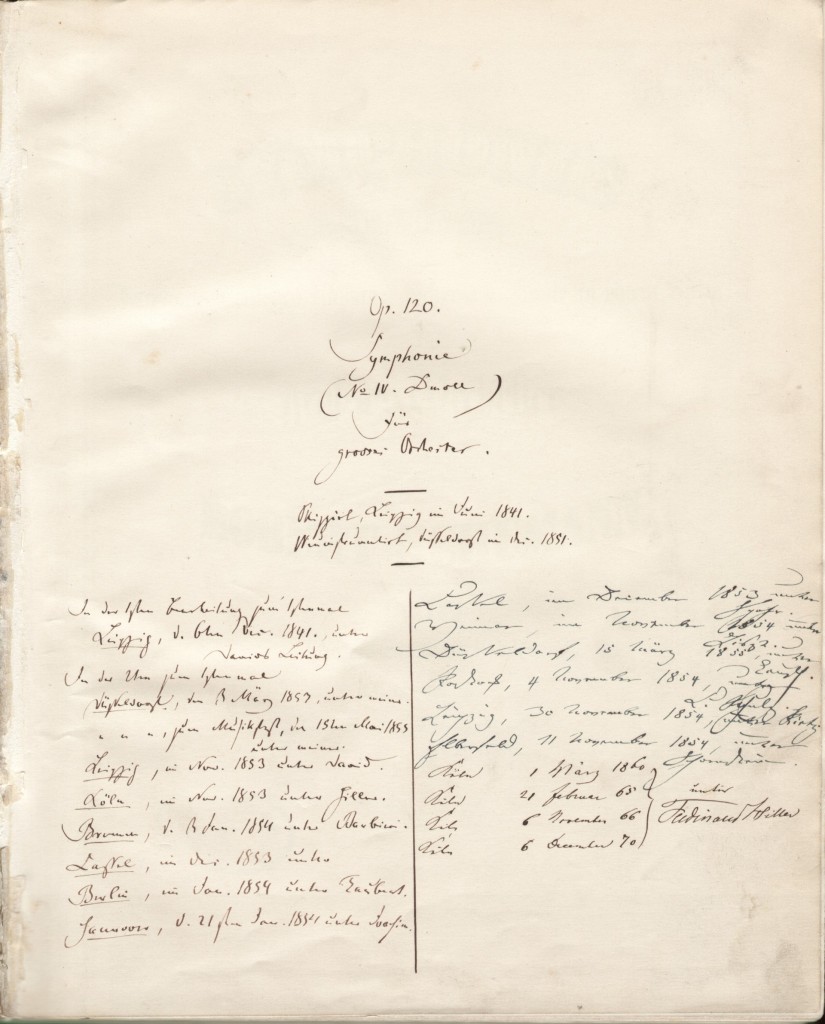 Op. 120.
Symphonie
(No IV. Dmoll)
für
grosses Orchester.
Skizzirt, Leipzig im Juni 1841.
Neuinstrumentirt, Düsseldorf im Dec. 1851.
In der 1sten Bearbeitung zum 1stenmal
Leipzig, d. 6ten Dec. 1841., unter
Davids Leitung.
In der 2ten zum 1stenmal
Düsseldorf, den 3 März 1853, unter meiner.
" " ", zum Musikfest, den 15ten Mai 1853
unter meiner.
Leipzig, im Nov. 1853 unter David.
Köln, im Nov. 1853 unter Hiller.
Bremen, d. 3 Jan. 1854 unter
Cassel, im Dec. 1853 unter
Berlin, im Jan. 1854 unter Taubert.
Hannover, d. 21sten Jan. 1854 unter Joachim.
Cassel, im December 1853 unter
Spohr.
Weimar, im November 1854 unter
Liszt.
Düsseldorf, 15 März 1855, unter
Tausch.
Rostock, 4 November 1854, unter
Leipzig, 30 November 1854, unter
Elberfeld, 11 November 1854, unter
Köln 1 März 1860
Köln 21 Februar 65
unter
Köln 6 November 66
Ferdinand Hiller
Köln 6 December 70